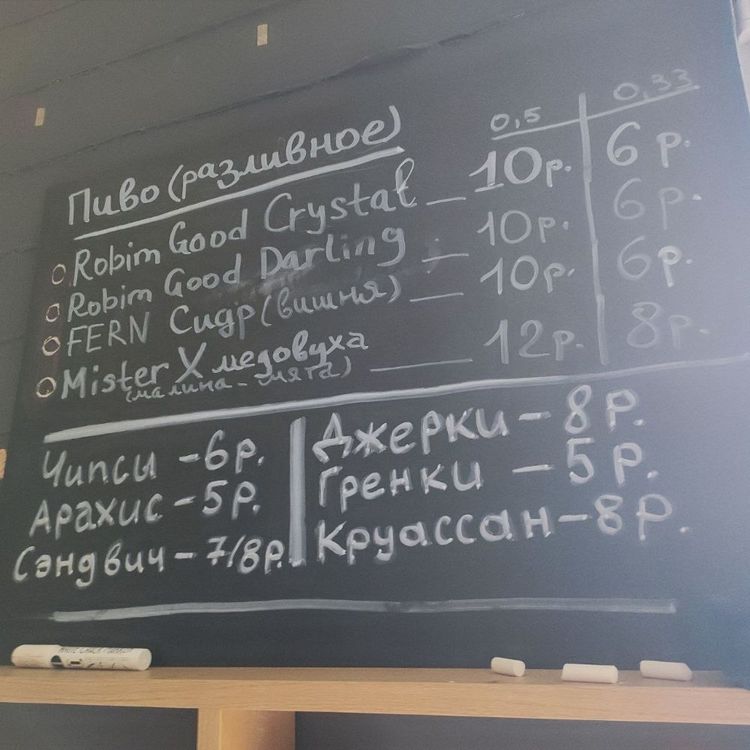 0,5 0,33
Пиво (разливное)
Robim Good Crystal — 10р. 6р.
Robim Good Darling — 10р. 6р.
FERN Сидр (вишня) — 10р. 6р.
Mister X медовуха — 12р. 8р.
(малина-мята)
Чипсы - 6р.
Арахис - 5р.
Сэндвич - 7/8р.
Джерки - 8р.
Гренки - 5р.
Круассан - 8р.